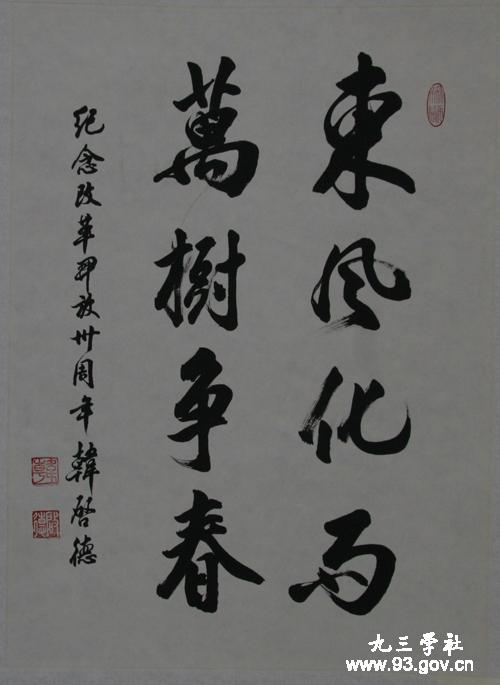 東風化雨
萬樹争春
纪念改革开放卅周年 韓啓德
九三学社
www.93.gov.cn